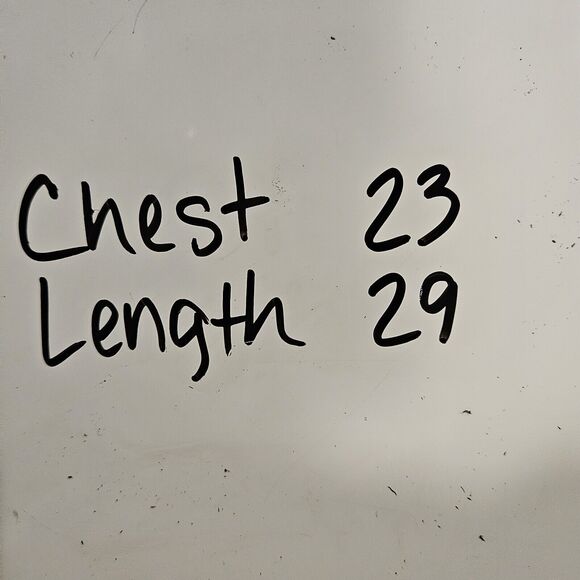 Chest 23
Length 29